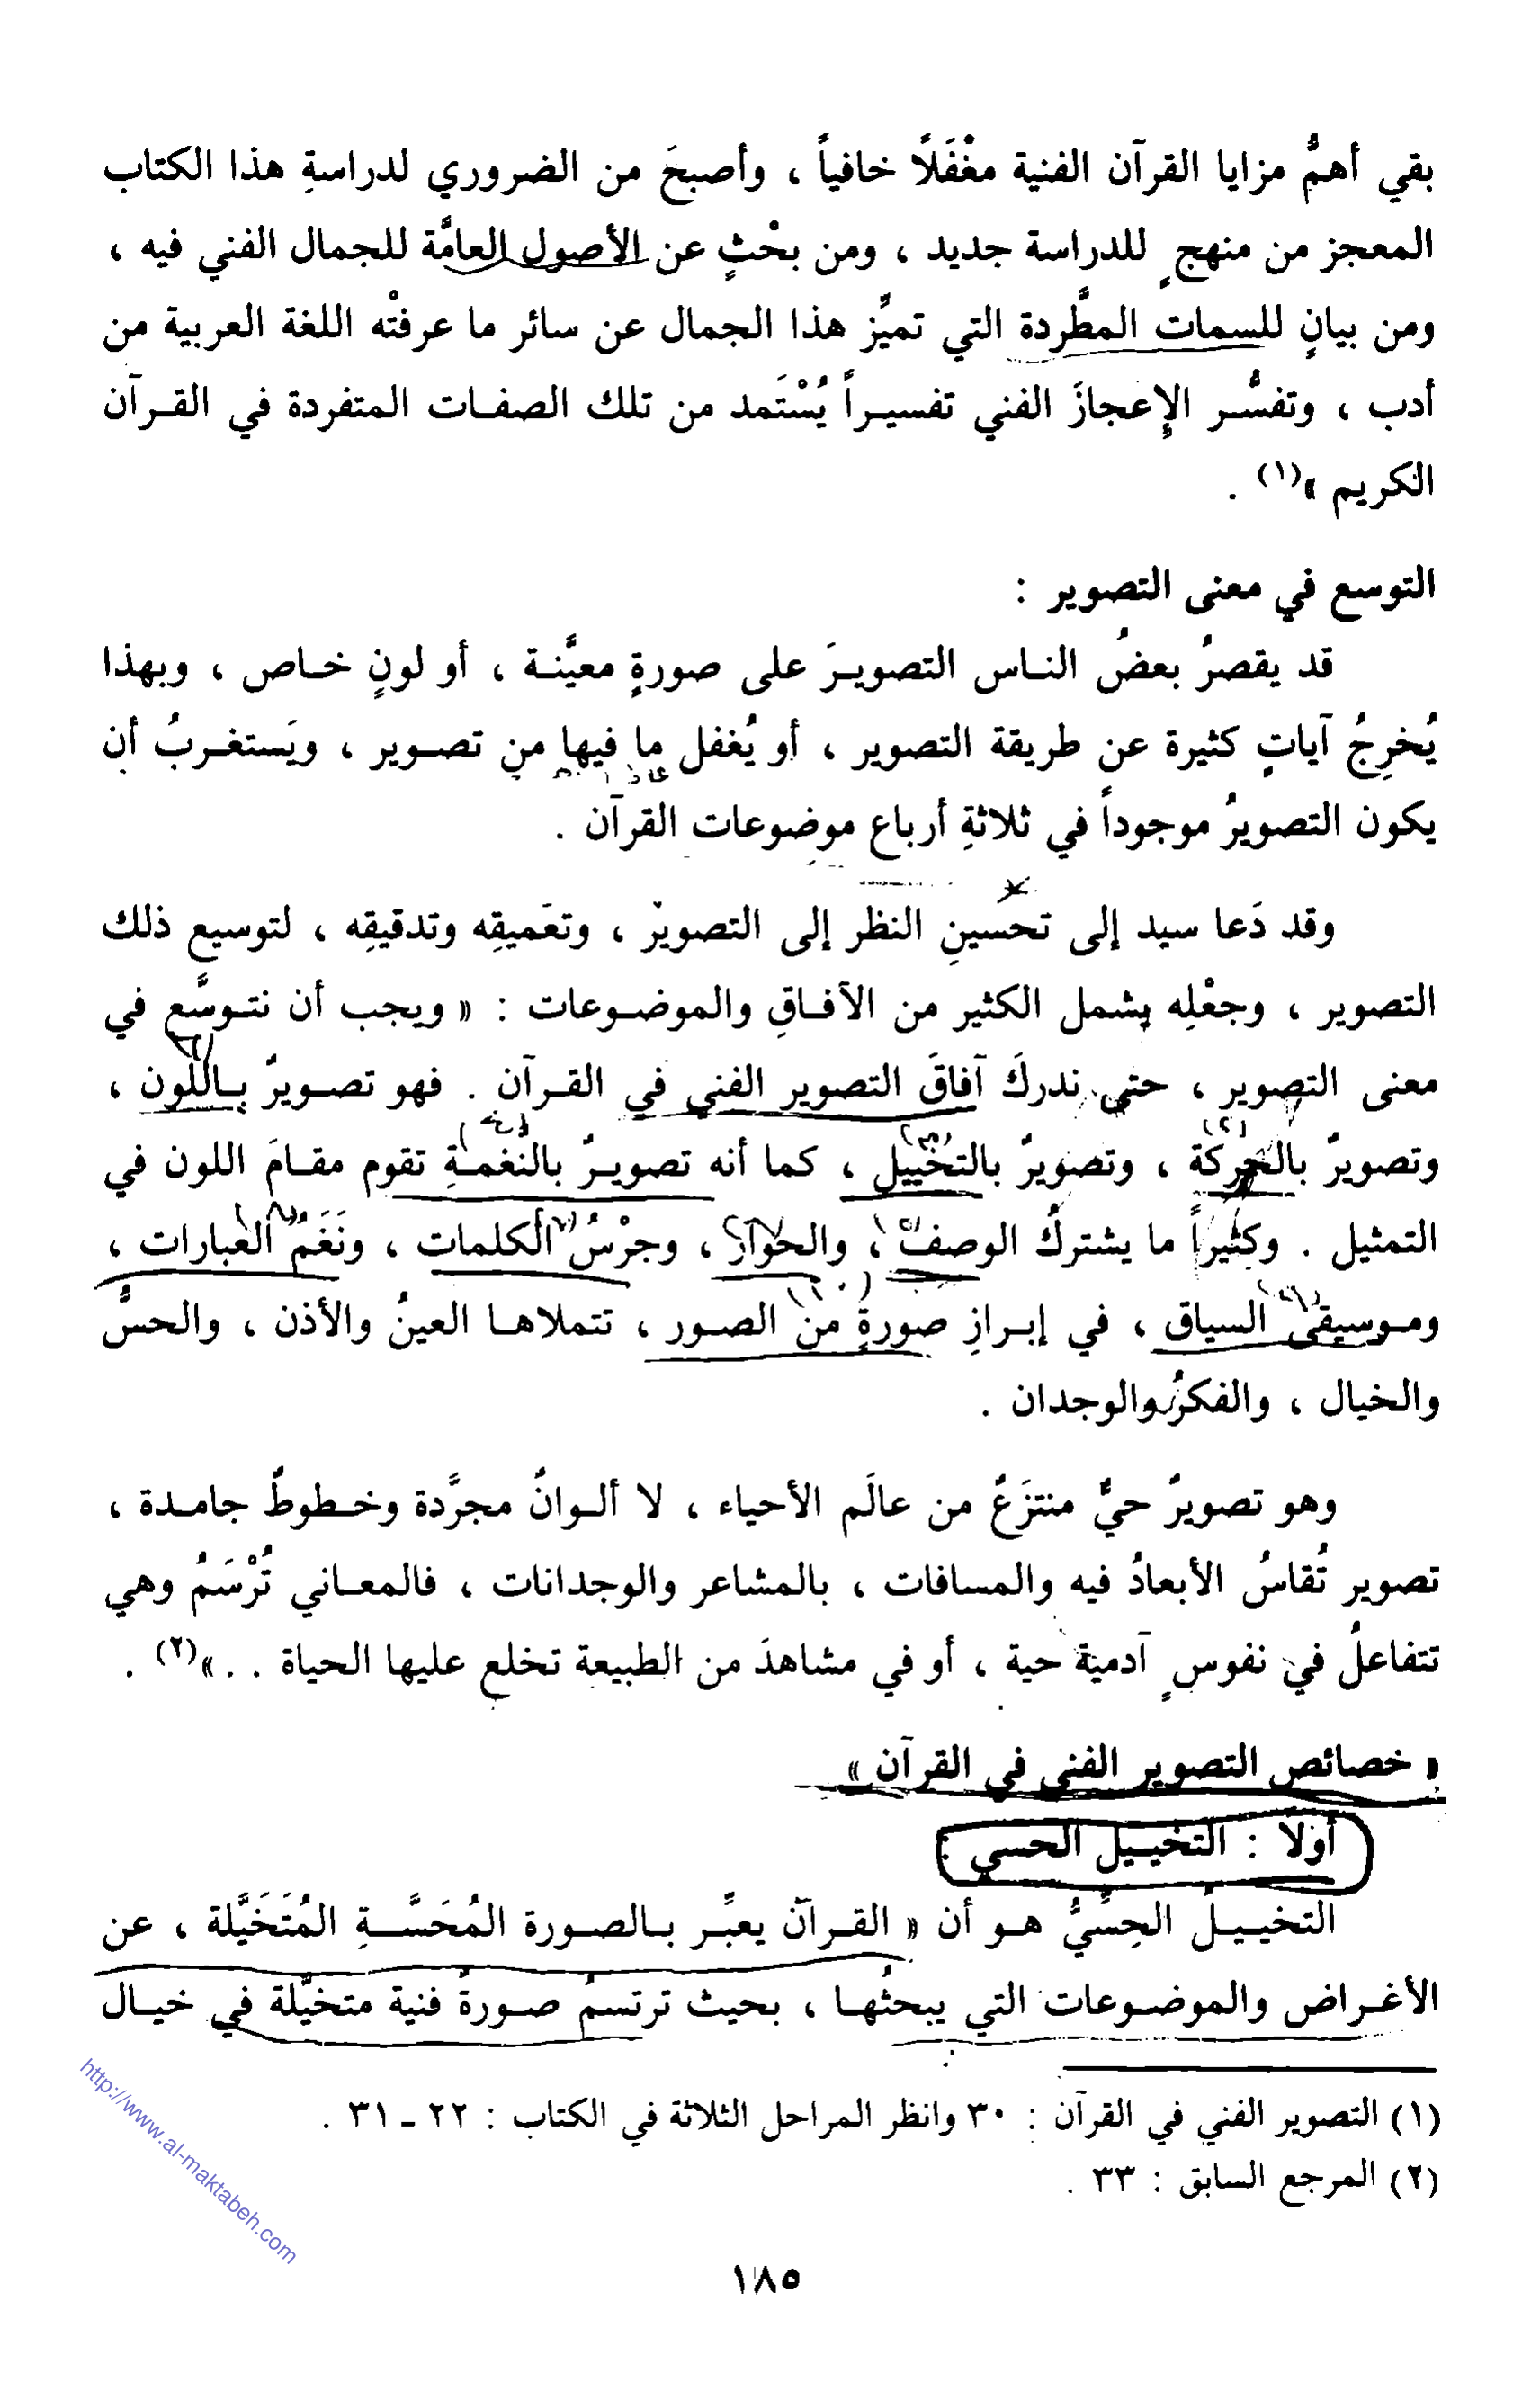 بقي أهمُّ مزايا القرآن الفنية مغْفَلًا خافياً ، وأصبحَ من الضروري لدراسةِ هذا الكتاب
المعجز من منهجٍ للدراسة جديد ، ومن بحْثٍ عن الأصول العامَّة للجمال الفني فيه ،
ومن بيانٍ للسمات المطَّردة التي تميِّز هذا الجمال عن سائر ما عرفتْه اللغة العربية من
أدب ، وتفسُّر الإعجازَ الفني تفسيراً يُسْتَمد من تلك الصفات المتفردة في القرآن
الكريم »(١) .
التوسع في معنى التصوير :
قد يقصرُ بعضُ الناس التصويرَ على صورةٍ معيَّنة ، أو لونٍ خاص ، وبهذا
يُخرِجُ آياتٍ كثيرة عن طريقة التصوير ، أو يُغفل ما فيها من تصوير ، ويَستغربُ أن
يكون التصويرُ موجوداً في ثلاثةِ أرباع موضوعات القرآن .
وقد دَعا سيد إلى تحسينِ النظر إلى التصوير ، وتعميقِه وتدقيقِه ، لتوسيع ذلك
التصوير ، وجعْلِه يشمل الكثير من الآفاقِ والموضوعات : « ويجب أن نتوسَّع في
معنى التصوير ، حتى ندركَ آفاقَ التصوير الفني في القرآن . فهو تصويرٌ باللون ،
وتصويرٌ بالحركة ، وتصويرٌ بالتخييل ، كما أنه تصويرٌ بالنغمةِ تقوم مقامَ اللون في
التمثيل . وكثيراً ما يشتركُ الوصفُ ، والحوارُ ، وجرْسُ الكلمات ، ونَغَمُ العبارات ،
وموسيقى السياق ، في إبرازِ صورةٍ من الصور ، تتملاها العينُ والأذن ، والحسُّ
والخيال ، والفكرُ والوجدان .
وهو تصويرٌ حيٌّ منتزَعٌ من عالَم الأحياء ، لا ألوانٌ مجرَّدة وخطوطٌ جامدة ،
تصوير تُقاسُ الأبعادُ فيه والمسافات ، بالمشاعر والوجدانات ، فالمعاني تُرْسَمُ وهي
تتفاعلُ في نفوسٍ آدمية حية ، أو في مشاهدَ من الطبيعة تخلع عليها الحياة . . »(٢) .
« خصائص التصوير الفني في القرآن »
أولًا : التخييل الحسي :
التخييلُ الحِسِّيُّ هو أن « القرآن يعبِّر بالصورة المُحَسَّةِ المُتَخَيَّلة ، عن
الأغراض والموضوعات التي يبحثُها ، بحيث ترتسمُ صورةٌ فنية متخيَّلة في خيال
(١) التصوير الفني في القرآن : ٣٠ وانظر المراحل الثلاثة في الكتاب : ٢٢ ـ ٣١ .
(٢) المرجع السابق : ٣٣ .
http://www.al-maktabeh.com
١٨٥